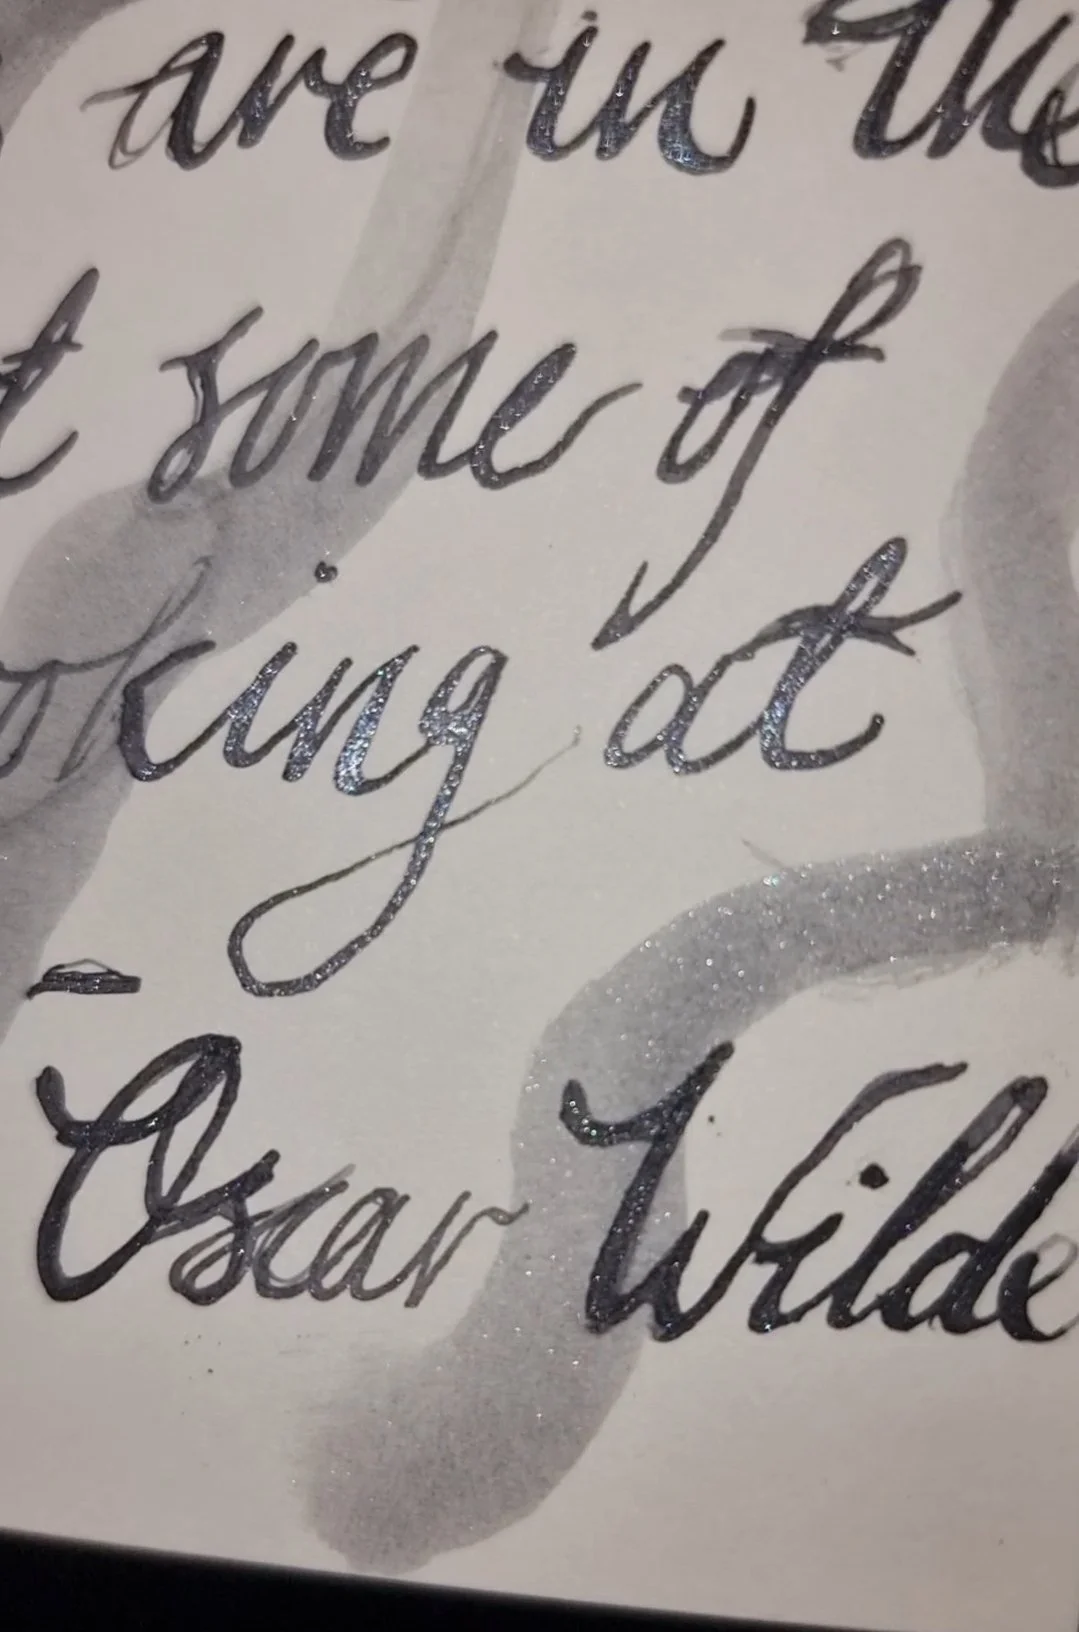 are in the
t some of
oking at
- Oscar Wilde